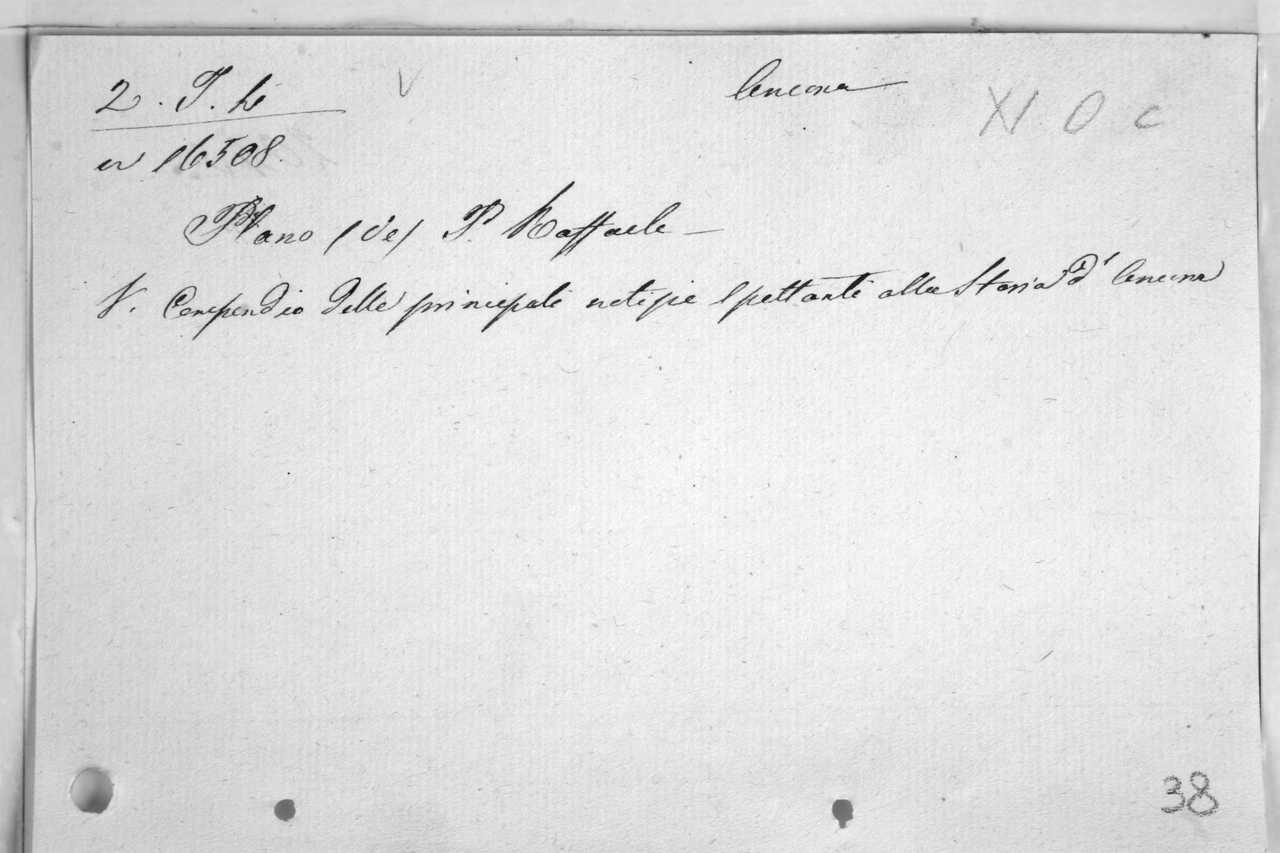 2. T. h V Ancona XI O c
n 16508.
Plano (de) P. Raffaele —
V. Compendio delle principali notizie spettanti alla Storia d' Ancona
38